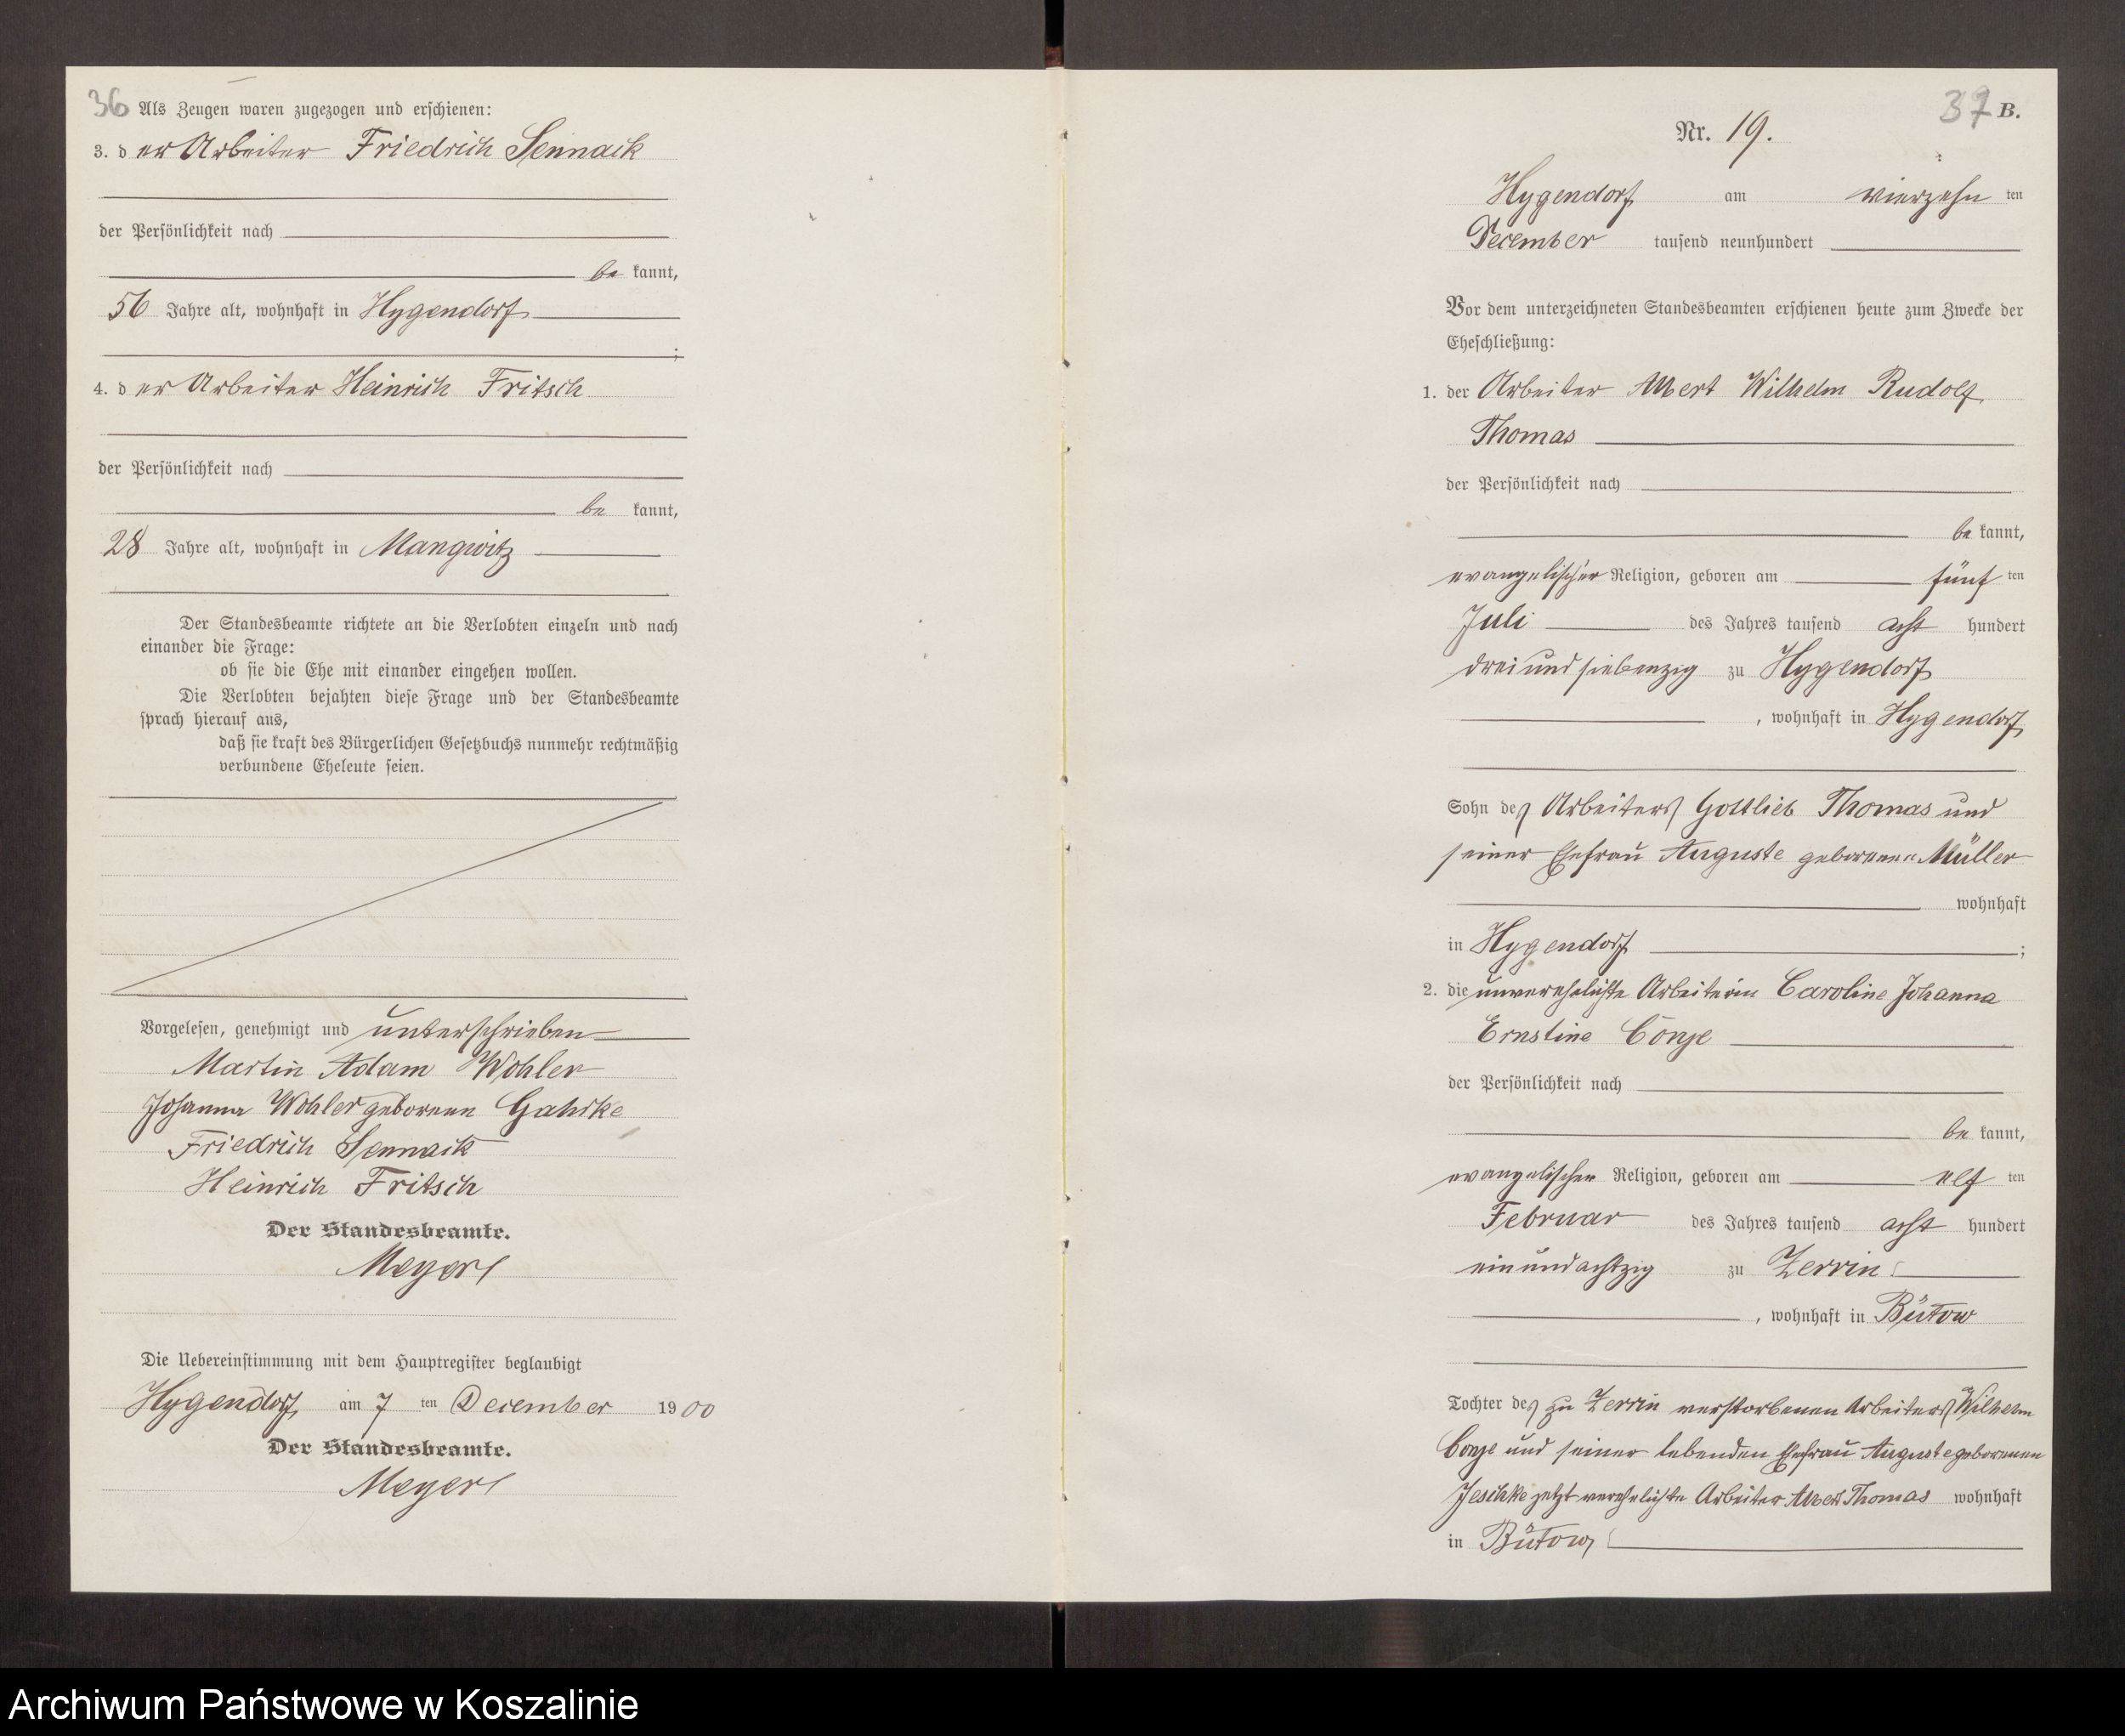 36 Als Zeugen waren zugezogen und erschienen:
3. der Arbeiter Friedrich Sennack
der Persönlichkeit nach
be kannt,
56 Jahre alt, wohnhaft in Hygendorf
;
4. der Arbeiter Heinrich Fritsch
der Persönlichkeit nach
be kannt,
28 Jahre alt, wohnhaft in Mangwitz
Der Standesbeamte richtete an die Verlobten einzeln und nach
einander die Frage:
ob sie die Ehe mit einander eingehen wollen.
Die Verlobten bejahten diese Frage und der Standesbeamte
sprach hierauf aus,
daß sie kraft des Bürgerlichen Gesetzbuchs nunmehr rechtmäßig
verbundene Eheleute seien.
Vorgelesen, genehmigt und unterschrieben
Martin Adam Wohler
Johanna Wohler geborenen Gahrke
Friedrich Sennack
Heinrich Fritsch
Der Standesbeamte.
Meyer
Die Uebereinstimmung mit dem Hauptregister beglaubigt
Hygendorf, am 7 ten December 1900
Der Standesbeamte.
Meyer
37 B.
Nr. 19.
Hygendorf am vierzehn ten
December tausend neunhundert
Vor dem unterzeichneten Standesbeamten erschienen heute zum Zwecke der
Eheschließung:
1. der Arbeiter Albert Wilhelm Rudolf
Thomas
der Persönlichkeit nach
be kannt,
evangelischer Religion, geboren am fünf ten
Juli des Jahres tausend acht hundert
drei und siebenzig zu Hygendorf
, wohnhaft in Hygendorf
Sohn des Arbeiters Gottlieb Thomas und
seiner Ehefrau Auguste geborenen Müller
wohnhaft
in Hygendorf ;
2. die unverehelichte Arbeiterin Caroline Johanna
Ernstine Conje
der Persönlichkeit nach
be kannt,
evangelischen Religion, geboren am elf ten
Februar des Jahres tausend acht hundert
ein und achtzig zu Zerrin
, wohnhaft in Bütow
Tochter des zu Zerrin verstorbenen Arbeiters Wilhelm
Conje und seiner lebenden Ehefrau Auguste geborenen
Jeschke jetzt verehelichte Arbeiter Albert Thomas wohnhaft
in Bütow
Archiwum Państwowe w Koszalinie